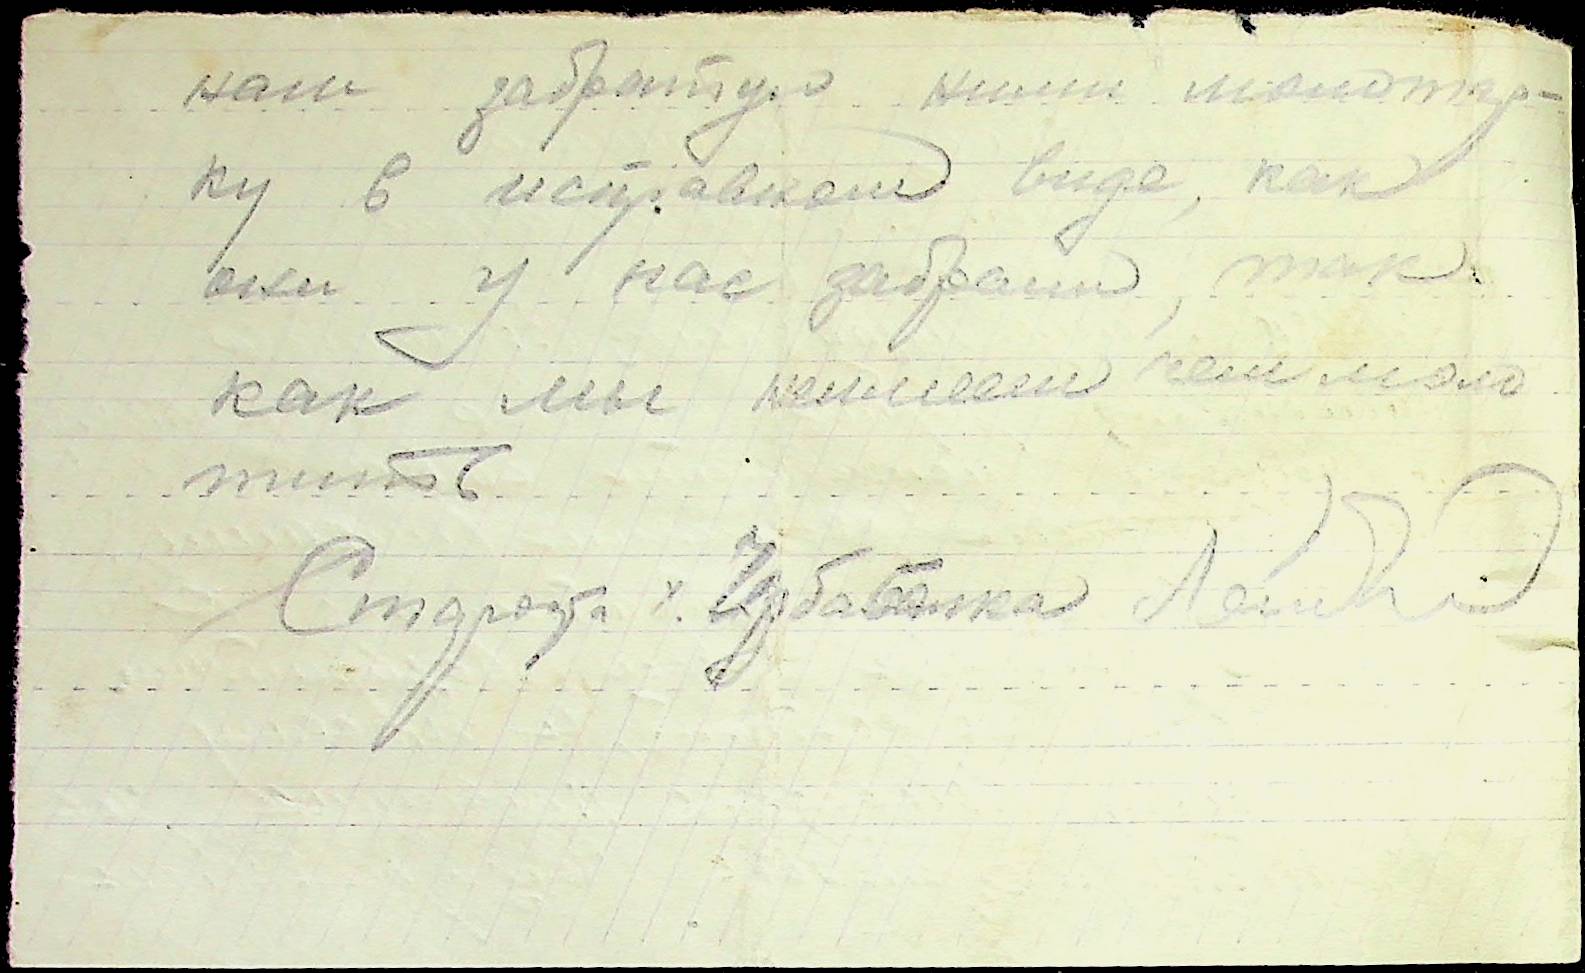 нам забратую ними молотар-
ку в исправном виде, как
они у нас забрали, так
как мы неимеем чем моло
тить
Староста х. Урбабанка